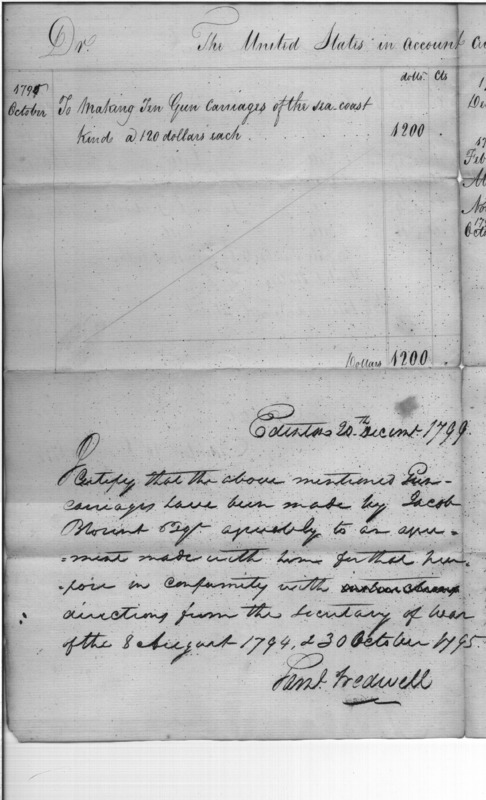 Dr. The United States in Account Cu
dolls Cts
1795
October To Making Ten Gun Carriages of the sea coast
Kind a 120 dollars each. 1200
Dollars 1200
Edenton 20th Decemr. 1799.
I Certify that the above mentioned Gun-
carriages have been made by Jacob
Blount Esqr. agreeably to an agree-
-ment made with him for that pur-
-pose in conformity with
directions from the Secretary of War
of the 8 August 1794, & 30 October 1795.
Saml. Tredwell
De
Feb
No
Octo